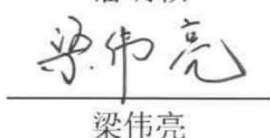 梁伟亮
梁伟亮